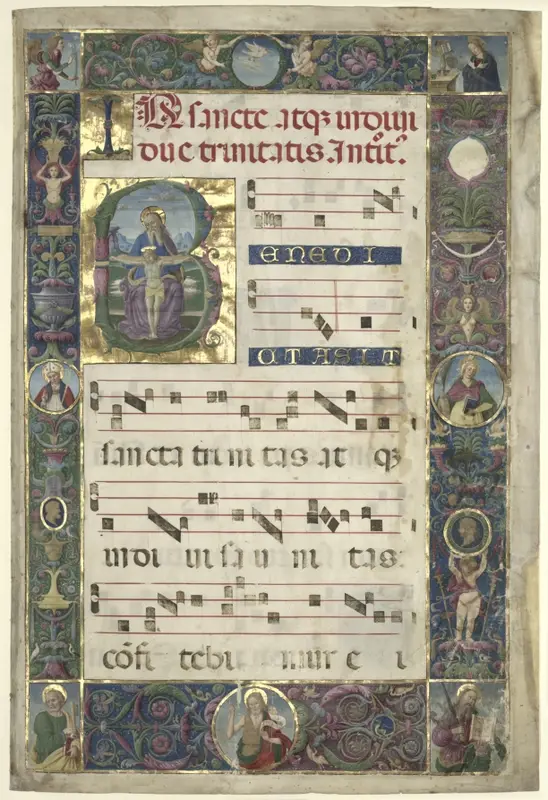 IN sancte atqꝫ indiui
due trinitatis. Introit.
B
ENEDI
CTA SIT
sancta trini tas at qꝫ
indi ui sa u ni tas:
cōfi tebi mur e i